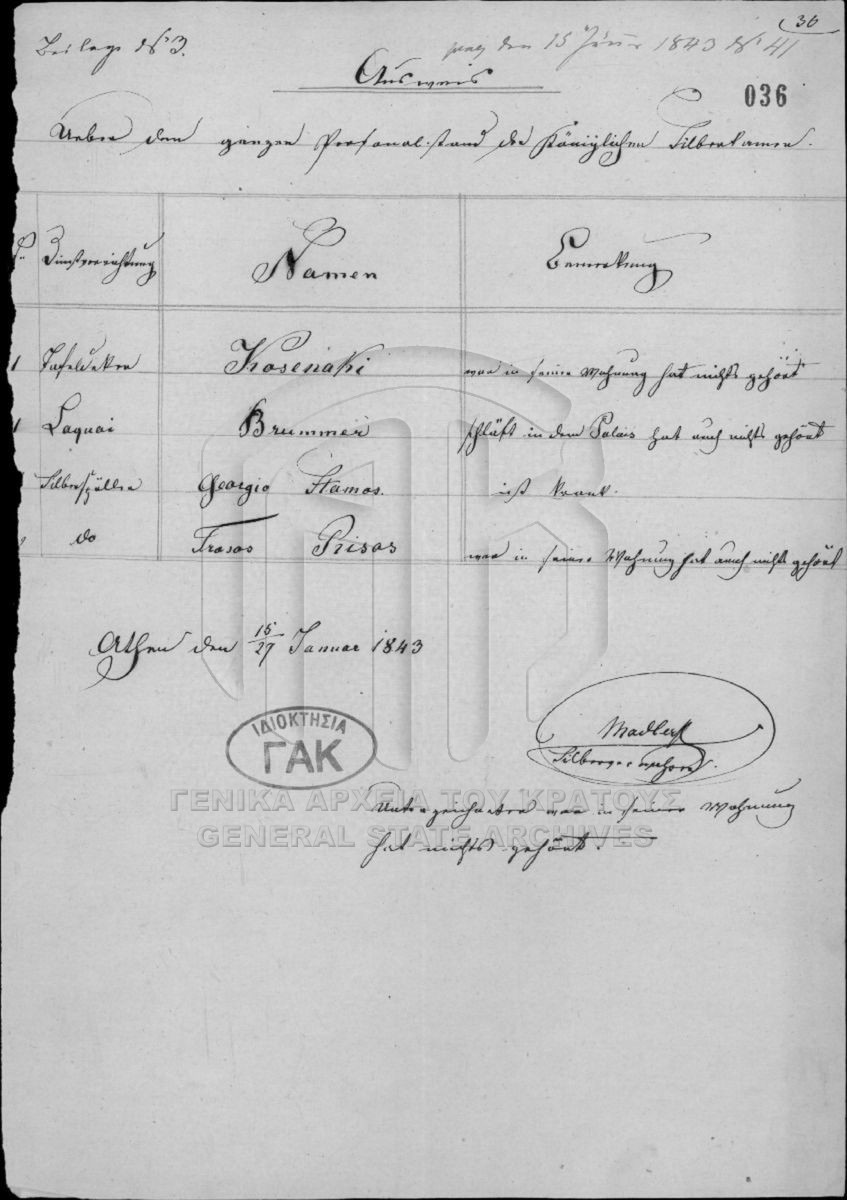 36
Beilage No 3.
den 15 Jänner 1843 No 41
Ausweis
036
Ueber den ganzen Personalstand der Königlichen Silberkamer.
Dienstverrichtung Namen Bemerkung
1 Tafeldeker Kosenaki war in seiner Wohnung hat nichts gehört
1 Laquai Brummer schläft in dem Palais hat auch nichts gehört
Silberspüller Georgio Stamos. ist krank.
do Frasos Prisas war in seiner Wohnung hat auch nichts gehört
Athen den 15/27 Januar 1843
ΙΔΙΟΚΤΗΣΙΑ
ΓΑΚ
Silberverwahrer.
ΓΕΝΙΚΑ ΑΡΧΕΙΑ ΤΟΥ ΚΡΑΤΟΥΣ
Unterzeichneter war in seiner Wohnung
GENERAL STATE ARCHIVES
hat nichts gehört.